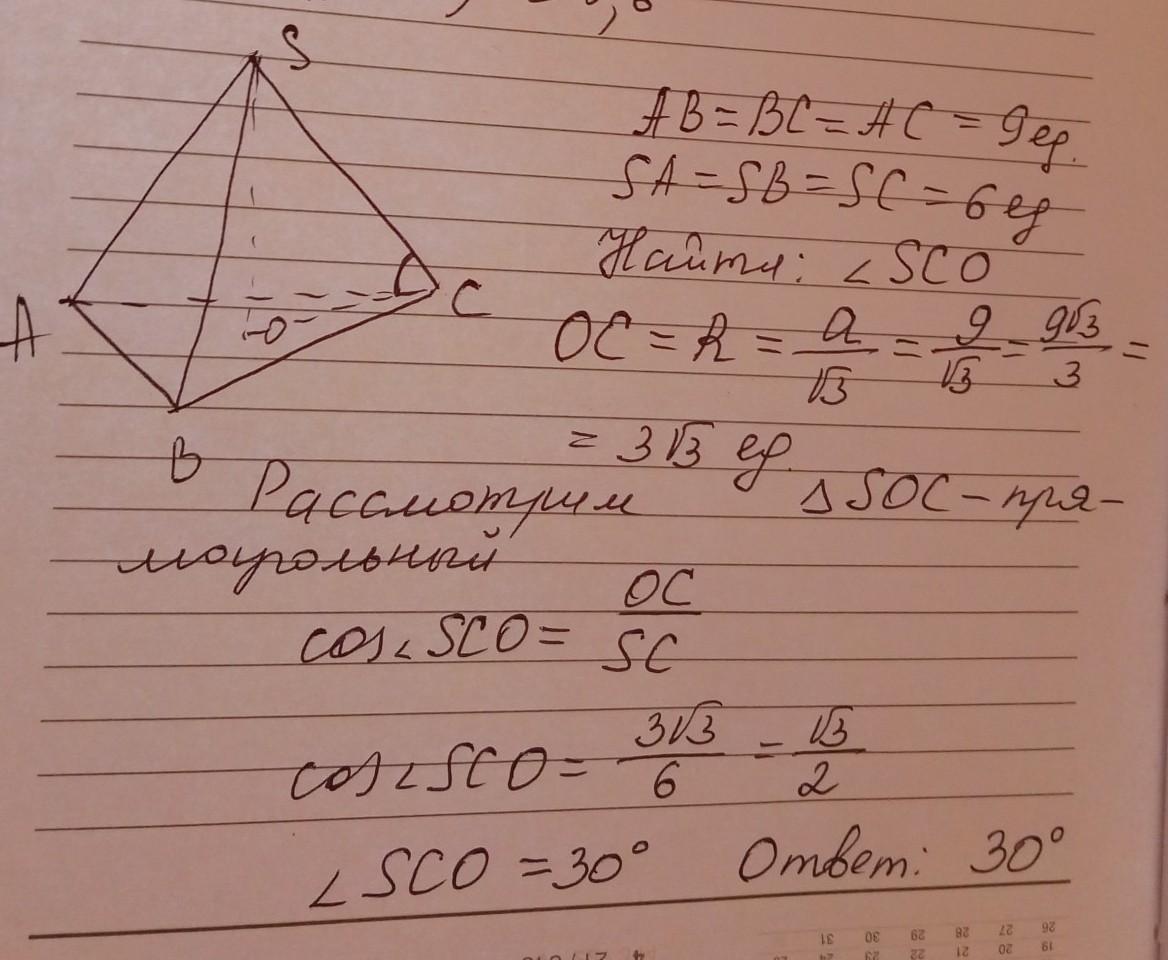 S
A
B
C
O
AB = BC = AC = 9 ед.
SA = SB = SC = 6 ед
Найти: ∠SCO
OC = R = a/√3 = 9/√3 = 9√3/3 =
= 3√3 ед.
Рассмотрим △SOC – пря-
моугольный
cos∠SCO = OC/SC
cos∠SCO = 3√3/6 = √3/2
∠SCO = 30° Ответ: 30°
26 27 28 29 30 31
19 20 21 22 23 24